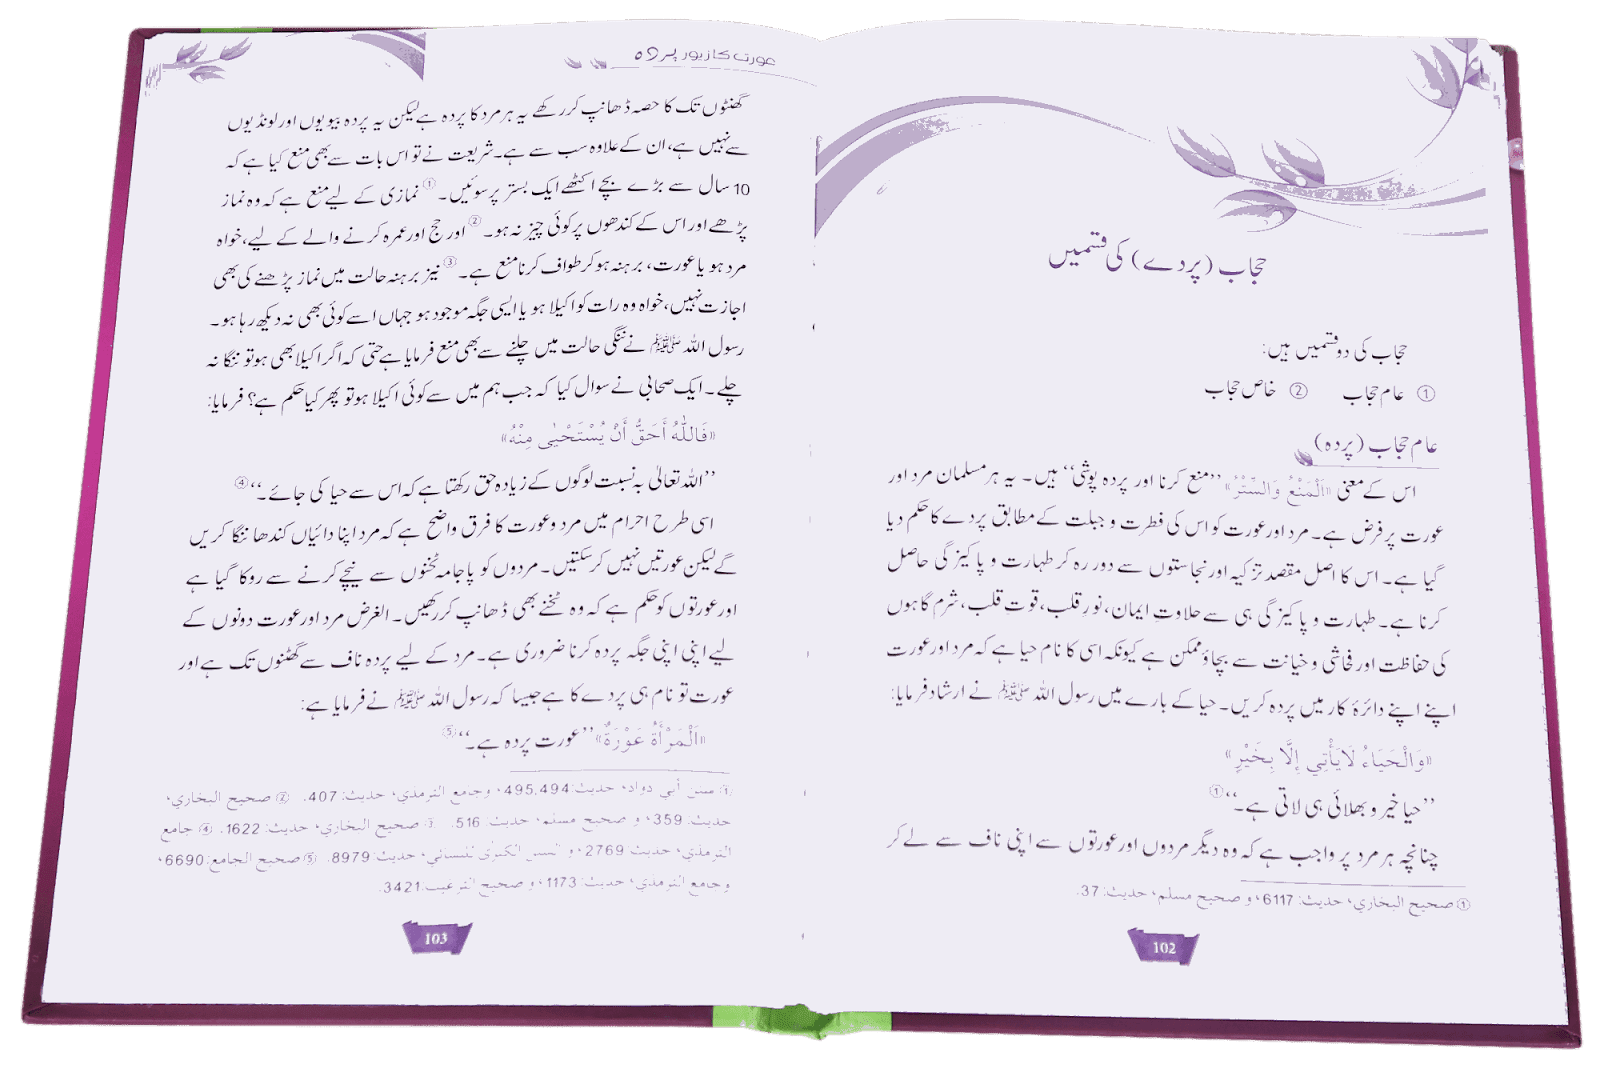 حجاب (پردے) کی قسمیں
حجاب کی دو قسمیں ہیں:
① عام حجاب ② خاص حجاب
عام حجاب (پردہ)
اس کے معنی «اَلْمَنْعُ وَالسَّتْرُ» ’’منع کرنا اور پردہ پوشی‘‘ ہیں۔ یہ ہر مسلمان مرد اور
عورت پر فرض ہے۔ مرد اور عورت کو اس کی فطرت و جبلت کے مطابق پردے کا حکم دیا
گیا ہے۔ اس کا اصل مقصد تزکیہ اور نجاستوں سے دور رہ کر طہارت و پاکیزگی حاصل
کرنا ہے۔ طہارت و پاکیزگی ہی سے حلاوتِ ایمان، نورِ قلب، قوت قلب، شرم گاہوں
کی حفاظت اور فحاشی و خیانت سے بچاؤ ممکن ہے کیونکہ اسی کا نام حیا ہے کہ مرد اور عورت
اپنے اپنے دائرۂ کار میں پردہ کریں۔ حیا کے بارے میں رسول اللہ ﷺ نے ارشاد فرمایا:
«وَالْحَيَاءُ لَا يَأْتِي إِلَّا بِخَيْرٍ»
’’حیا خیر و بھلائی ہی لاتی ہے۔‘‘①
چنانچہ ہر مرد پر واجب ہے کہ وہ دیگر مردوں اور عورتوں سے اپنی ناف سے لے کر
① صحيح البخاري، حديث: 6117، و صحيح مسلم، حديث: 37.
102
عورت کا زیور پردہ
گھٹنوں تک کا حصہ ڈھانپ کر رکھے یہ ہر مرد کا پردہ ہے لیکن یہ پردہ بیویوں اور لونڈیوں
سے نہیں ہے، ان کے علاوہ سب سے ہے۔ شریعت نے تو اس بات سے بھی منع کیا ہے کہ
10 سال سے بڑے بچے اکٹھے ایک بستر پر سوئیں۔① نمازی کے لیے منع ہے کہ وہ نماز
پڑھے اور اس کے کندھوں پر کوئی چیز نہ ہو۔② اور حج اور عمرہ کرنے والے کے لیے، خواہ
مرد ہو یا عورت، برہنہ ہو کر طواف کرنا منع ہے۔③ نیز برہنہ حالت میں نماز پڑھنے کی بھی
اجازت نہیں، خواہ وہ رات کو اکیلا ہو یا ایسی جگہ موجود ہو جہاں اسے کوئی بھی نہ دیکھ رہا ہو۔
رسول اللہ ﷺ نے ننگی حالت میں چلنے سے بھی منع فرمایا ہے حتی کہ اگر اکیلا بھی ہو تو ننگا نہ
چلے۔ ایک صحابی نے سوال کیا کہ جب ہم میں سے کوئی اکیلا ہو تو پھر کیا حکم ہے؟ فرمایا:
«فَاللّٰهُ أَحَقُّ أَنْ يُسْتَحْيٰى مِنْهُ»
’’اللہ تعالیٰ بہ نسبت لوگوں کے زیادہ حق رکھتا ہے کہ اس سے حیا کی جائے۔‘‘④
اسی طرح احرام میں مرد و عورت کا فرق واضح ہے کہ مرد اپنا دائیاں کندھا ننگا کریں
گے لیکن عورتیں نہیں کر سکتیں۔ مردوں کو پاجامہ ٹخنوں سے نیچے کرنے سے روکا گیا ہے
اور عورتوں کو حکم ہے کہ وہ ٹخنے بھی ڈھانپ کر رکھیں۔ الغرض مرد اور عورت دونوں کے
لیے اپنی اپنی جگہ پردہ کرنا ضروری ہے۔ مرد کے لیے پردہ ناف سے گھٹنوں تک ہے اور
عورت تو نام ہی پردے کا ہے جیسا کہ رسول اللہ ﷺ نے فرمایا ہے:
«اَلْمَرْأَةُ عَوْرَةٌ» ’’عورت پردہ ہے۔‘‘⑤
① سنن أبي داود، حديث: 495,494، وجامع الترمذي، حديث: 407. ② صحيح البخاري،
حديث: 359، و صحيح مسلم، حديث: 516. ③ صحيح البخاري، حديث: 1622. ④ جامع
الترمذي، حديث: 2769، و السنن الكبرى للنسائي، حديث: 8979. ⑤ صحيح الجامع: 6690،
وجامع الترمذي، حديث: 1173، و صحيح الترغيب: 3421.
103